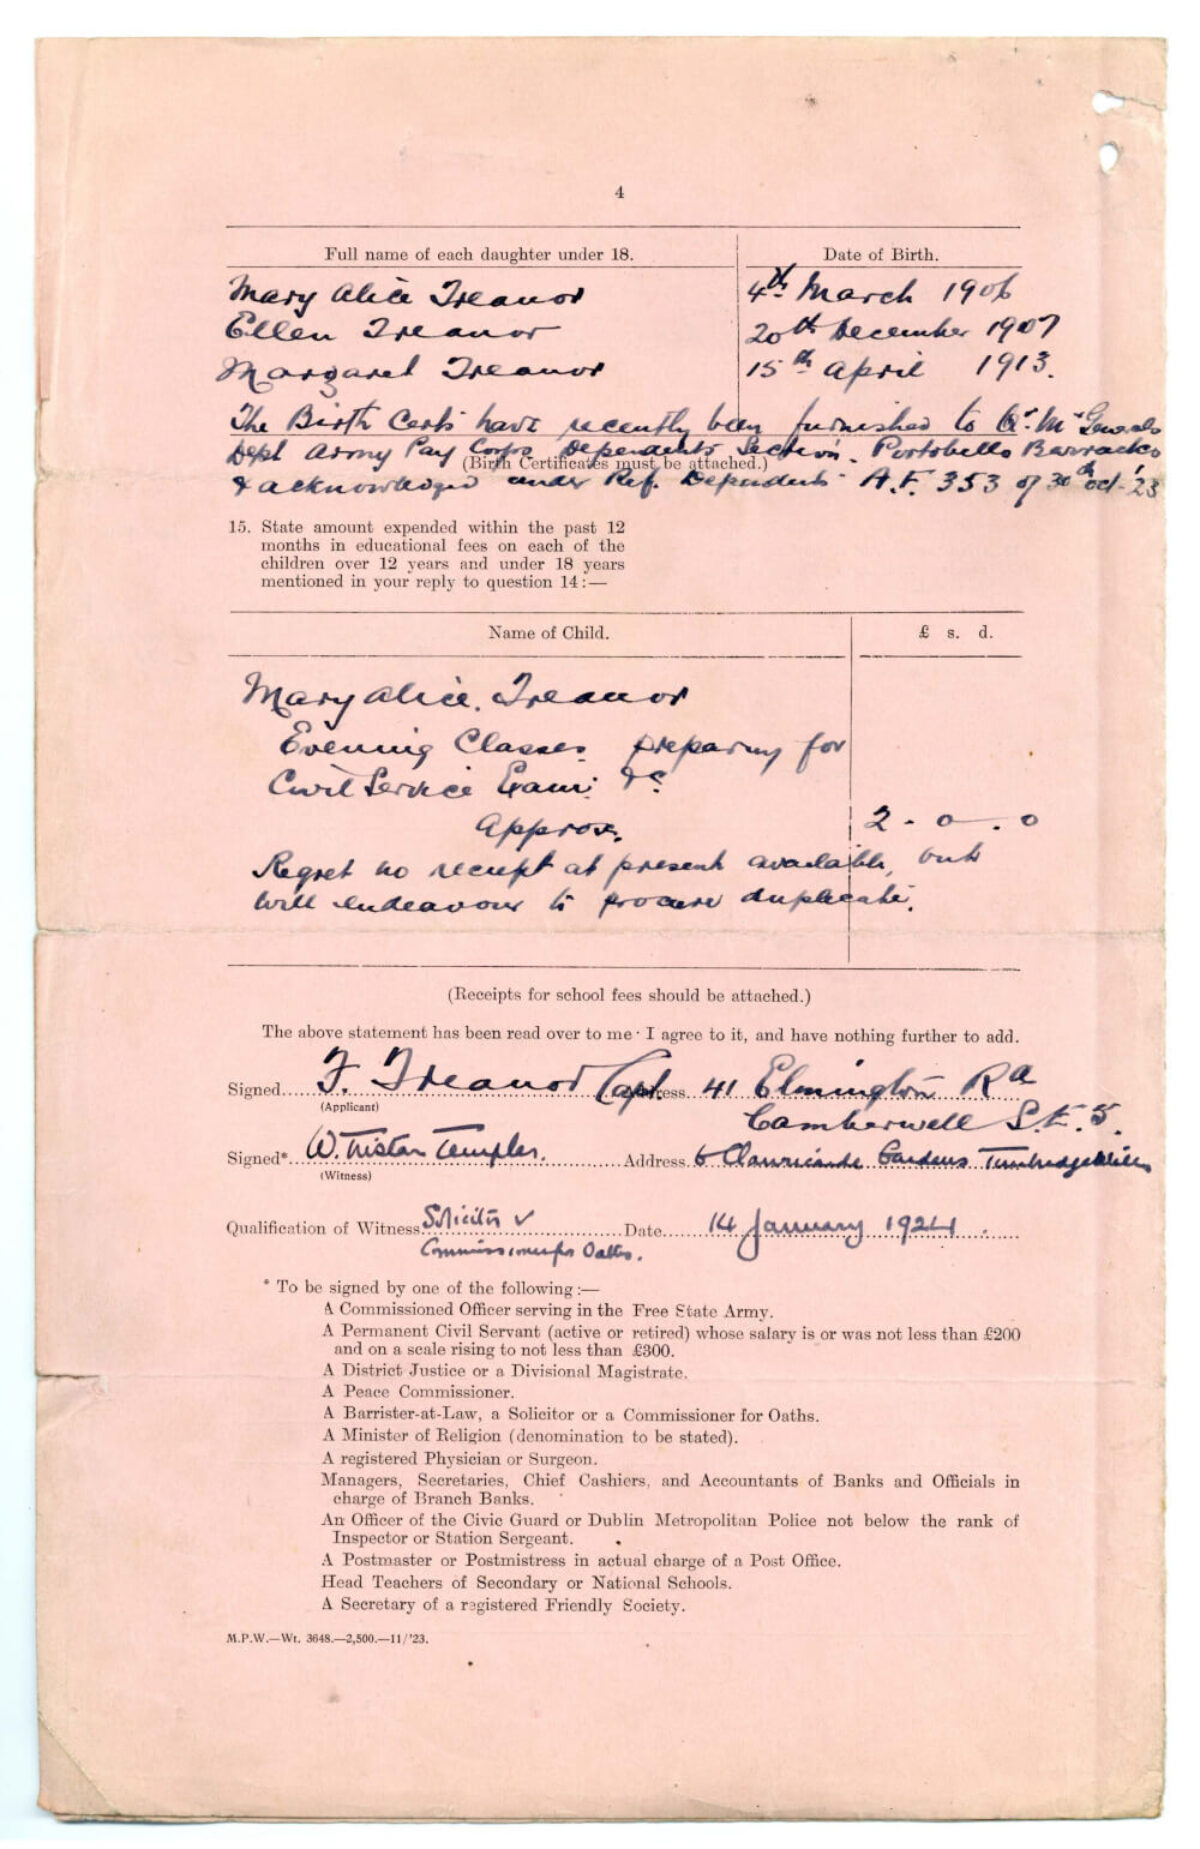 4
Full name of each daughter under 18. Date of Birth.
Mary Alice Treanor 4th March 1906
Ellen Treanor 20th December 1907
Margaret Treanor 15th April 1913.
The Birth Certs have recently been furnished to Qr. Mr Generals
Dept Army Pay Corps Dependents Section. Portobello Barracks
(Birth Certificates must be attached.)
& acknowledged under Ref. Dependents A.F. 353 of 30th Oct '23
15. State amount expended within the past 12
months in educational fees on each of the
children over 12 years and under 18 years
mentioned in your reply to question 14:—
Name of Child. £ s. d.
Mary Alice Treanor
Evening Classes preparing for
Civil Service Exam: &c.
Approx. 2 - 0 . 0
Regret no receipt at present available, but
will endeavour to procure duplicate.
(Receipts for school fees should be attached.)
The above statement has been read over to me · I agree to it, and have nothing further to add.
Signed F. Treanor Capt. Address 41 Elmington Rd
(Applicant)
Camberwell S.E.5.
Signed* W. Tristan Templer. Address 6 Clanricarde Gardens Tunbridge Wells
(Witness)
Qualification of Witness Solicitor & Date 14 January 1924.
Commissioner for Oaths.
* To be signed by one of the following:—
A Commissioned Officer serving in the Free State Army.
A Permanent Civil Servant (active or retired) whose salary is or was not less than £200
and on a scale rising to not less than £300.
A District Justice or a Divisional Magistrate.
A Peace Commissioner.
A Barrister-at-Law, a Solicitor or a Commissioner for Oaths.
A Minister of Religion (denomination to be stated).
A registered Physician or Surgeon.
Managers, Secretaries, Chief Cashiers, and Accountants of Banks and Officials in
charge of Branch Banks.
An Officer of the Civic Guard or Dublin Metropolitan Police not below the rank of
Inspector or Station Sergeant.
A Postmaster or Postmistress in actual charge of a Post Office.
Head Teachers of Secondary or National Schools.
A Secretary of a registered Friendly Society.
M.P.W.—Wt. 3648.—2,500.—11/'23.